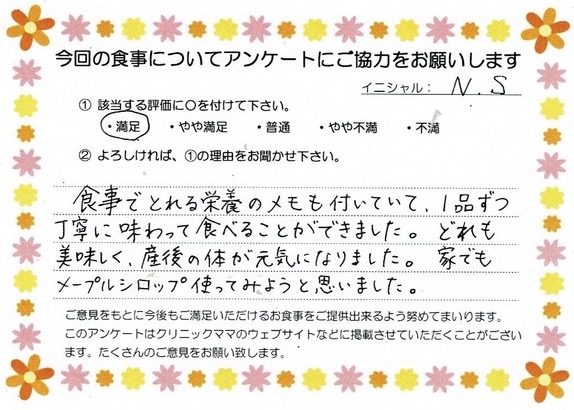 今回の食事についてアンケートにご協力をお願いします
イニシャル： N.S
① 該当する評価に〇を付けて下さい。
・満足 ・やや満足 ・普通 ・やや不満 ・不満
② よろしければ、①の理由をお聞かせ下さい。
食事でとれる栄養のメモも付いていて、1品ずつ
丁寧に味わって食べることができました。 どれも
美味しく、産後の体が元気になりました。 家でも
メープルシロップ使ってみようと思いました。
ご意見をもとに今後もご満足いただけるお食事をご提供出来るよう努めてまいります。
このアンケートはクリニックママのウェブサイトなどに掲載させていただくことがござい
ます。たくさんのご意見をお願い致します。